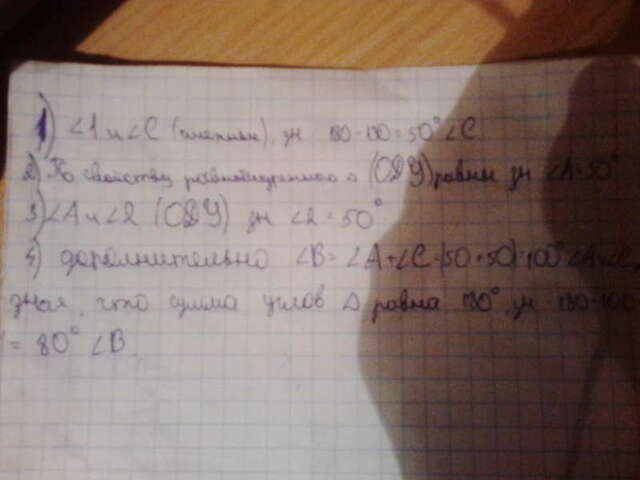 1) ∠1 и ∠C (смежные), зн 180-130=50° ∠C.
2) По свойству равнобедренного △ (ОДУ) равны зн ∠A=50°
3) ∠A и ∠2 (ОДУ) зн ∠2=50°
4) дополнительно ∠B=∠A+∠C=(50+50)=100° ∠A и ∠C,
зная, что сумма углов △ равна 180°, зн 180-100
= 80° ∠B.